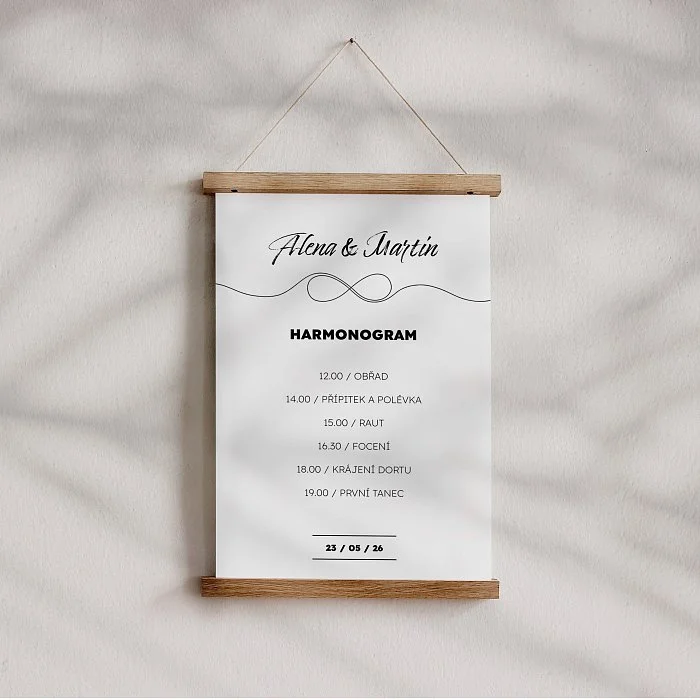 Alena & Martin
HARMONOGRAM
12.00 / OBŘAD
14.00 / PŘÍPITEK A POLÉVKA
15.00 / RAUT
16.30 / FOCENÍ
18.00 / KRÁJENÍ DORTU
19.00 / PRVNÍ TANEC
23 / 05 / 26